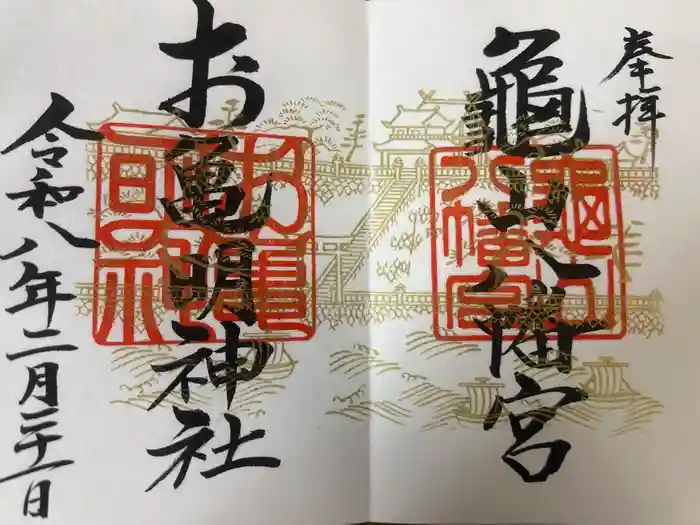 奉拝
亀山八幡宮
亀山八幡宮
お亀明神社
お亀明神社
令和八年二月二十一日